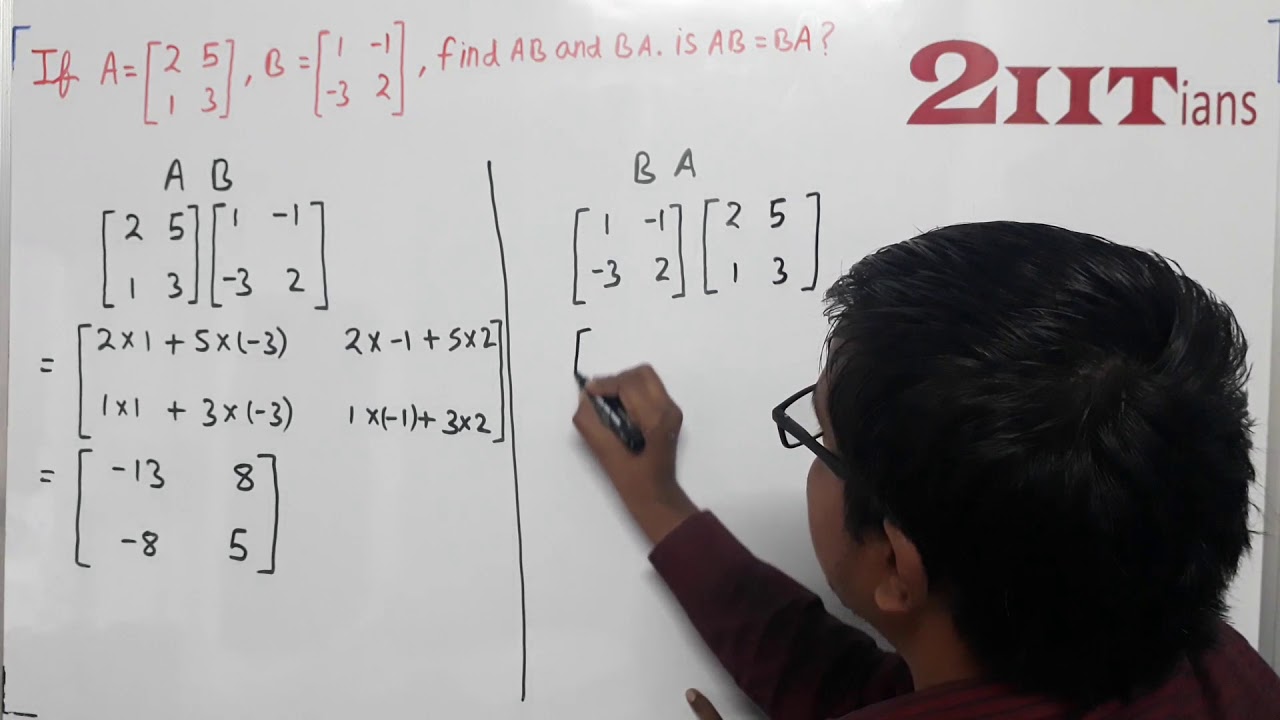 If A = [2 5 , B = [1 -1 , find AB and BA. is AB = BA?
1 3] -3 2]
2IITians
A B
[2 5] [1 -1]
[1 3] [-3 2]
= [2×1 + 5×(-3) 2× -1 + 5×2]
[1×1 + 3×(-3) 1×(-1)+ 3×2]
= [-13 8]
[-8 5]
B A
[1 -1] [2 5]
[-3 2] [1 3]
[